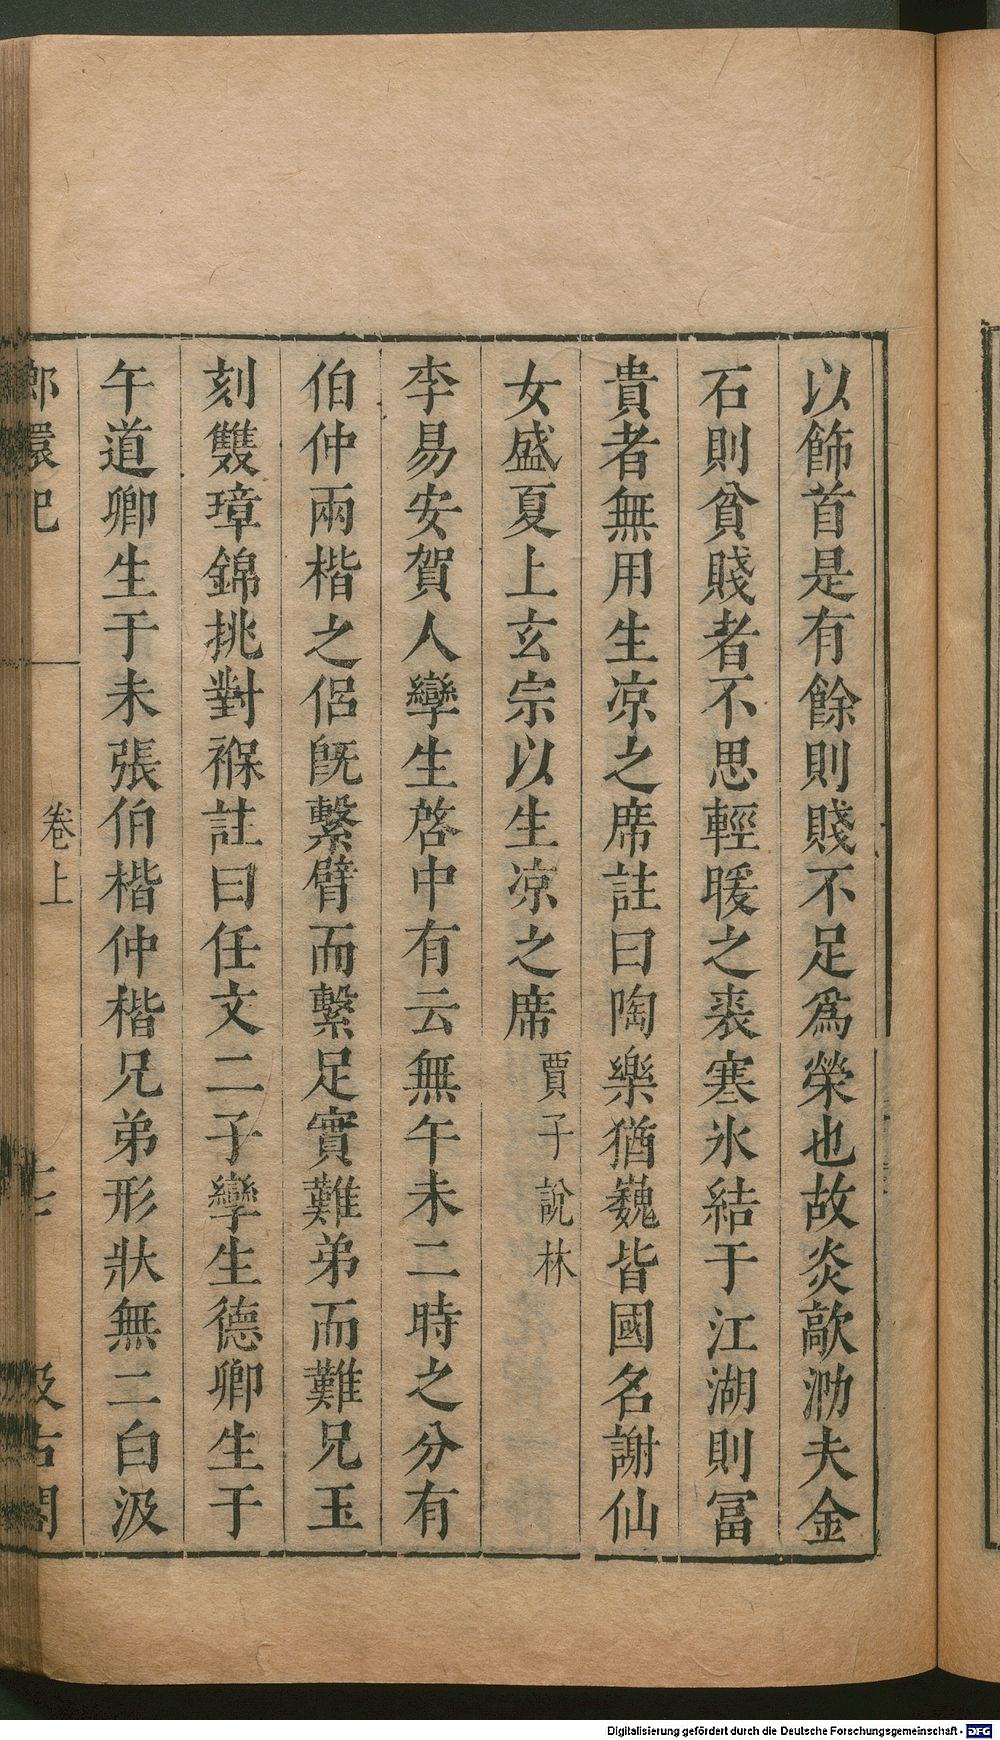 以飾首是有餘則賤不足爲榮也故炎歊泐夫金
石則貧賤者不思輕暖之裘寒氷結于江湖則冨
貴者無用生凉之席註曰陶樂猶巍皆國名謝仙
女盛夏上玄宗以生凉之席 賈子說林
李易安賀人孿生啓中有云無午未二時之分有
伯仲兩楷之侶旣繫臂而繫足實難弟而難兄玉
刻雙璋錦挑對褓註曰任文二子孿生德卿生于
午道卿生于未張伯楷仲楷兄弟形狀無二白汲
卷上
Digitalisierung gefördert durch die Deutsche Forschungsgemeinschaft - DFG